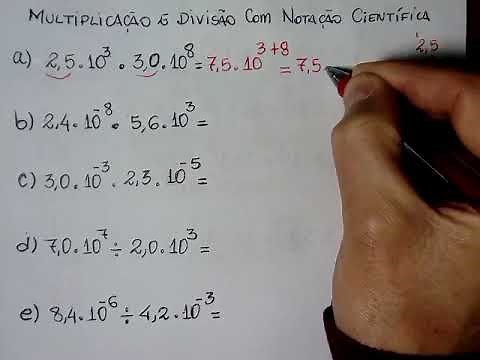 MULTIPLICAÇÃO E DIVISÃO COM NOTAÇÃO CIENTÍFICA
2,5
a) 2,5 · 10³ · 3,0 · 10⁸ = 7,5 · 10³⁺⁸ = 7,5
b) 2,4 · 10⁻⁸ · 5,6 · 10³ =
c) 3,0 · 10⁻³ · 2,3 · 10⁻⁵ =
d) 7,0 · 10⁷ ÷ 2,0 · 10³ =
e) 8,4 · 10⁻⁶ ÷ 4,2 · 10⁻³ =